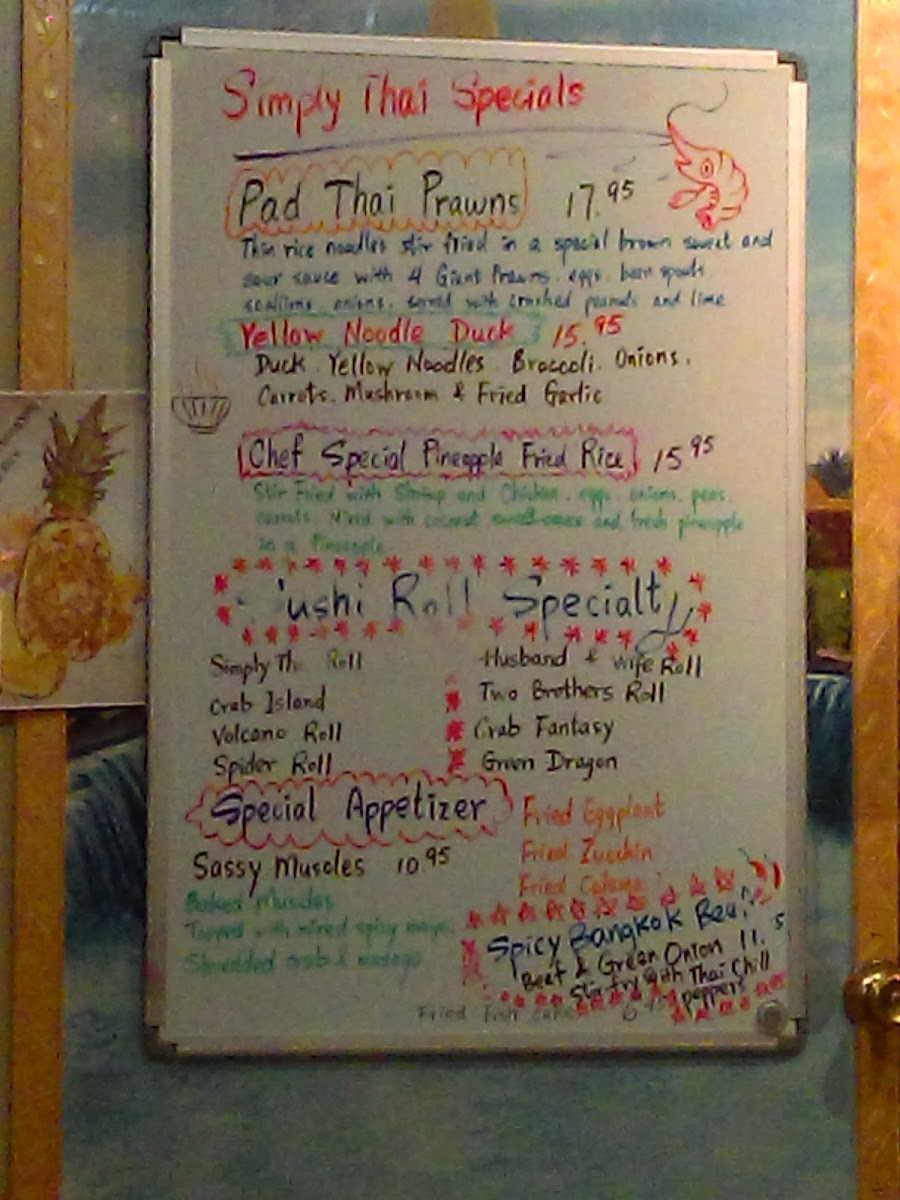 Simply Thai Specials
Pad Thai Prawns 17.95
Thin rice noodles stir fried in a special brown sweet and
sour sauce with 4 Giant Prawns. eggs. bean
onions. served with crushed peanuts and lime
Yellow Noodle Duck 15.95
Duck. Yellow Noodles. Broccoli. Onions.
Carrots. Mushroom & Fried Garlic
Chef Special Pineapple Fried Rice 15.95
Stir Fried with Shrimp and Chicken. eggs. onions. peas.
carrots. Mixed with coconut sauce and fresh pineapple
in a Pineapple
ushi Roll Specialty
Simply Th Roll
Crab Island
Volcano Roll
Spider Roll
Husband & Wife Roll
Two Brothers Roll
Crab Fantasy
Green Dragon
Special Appetizer
Sassy Muscles 10.95
Baked Muscles
Topped with mixed spicy mayo.
Shredded crab & masago
Fried Eggplant
Fried Zucchin
Fried
Spicy Bangkok
Beef & Green Onion 11.
Stir fry with Thai Chili
peppers
Fried Fish Cake